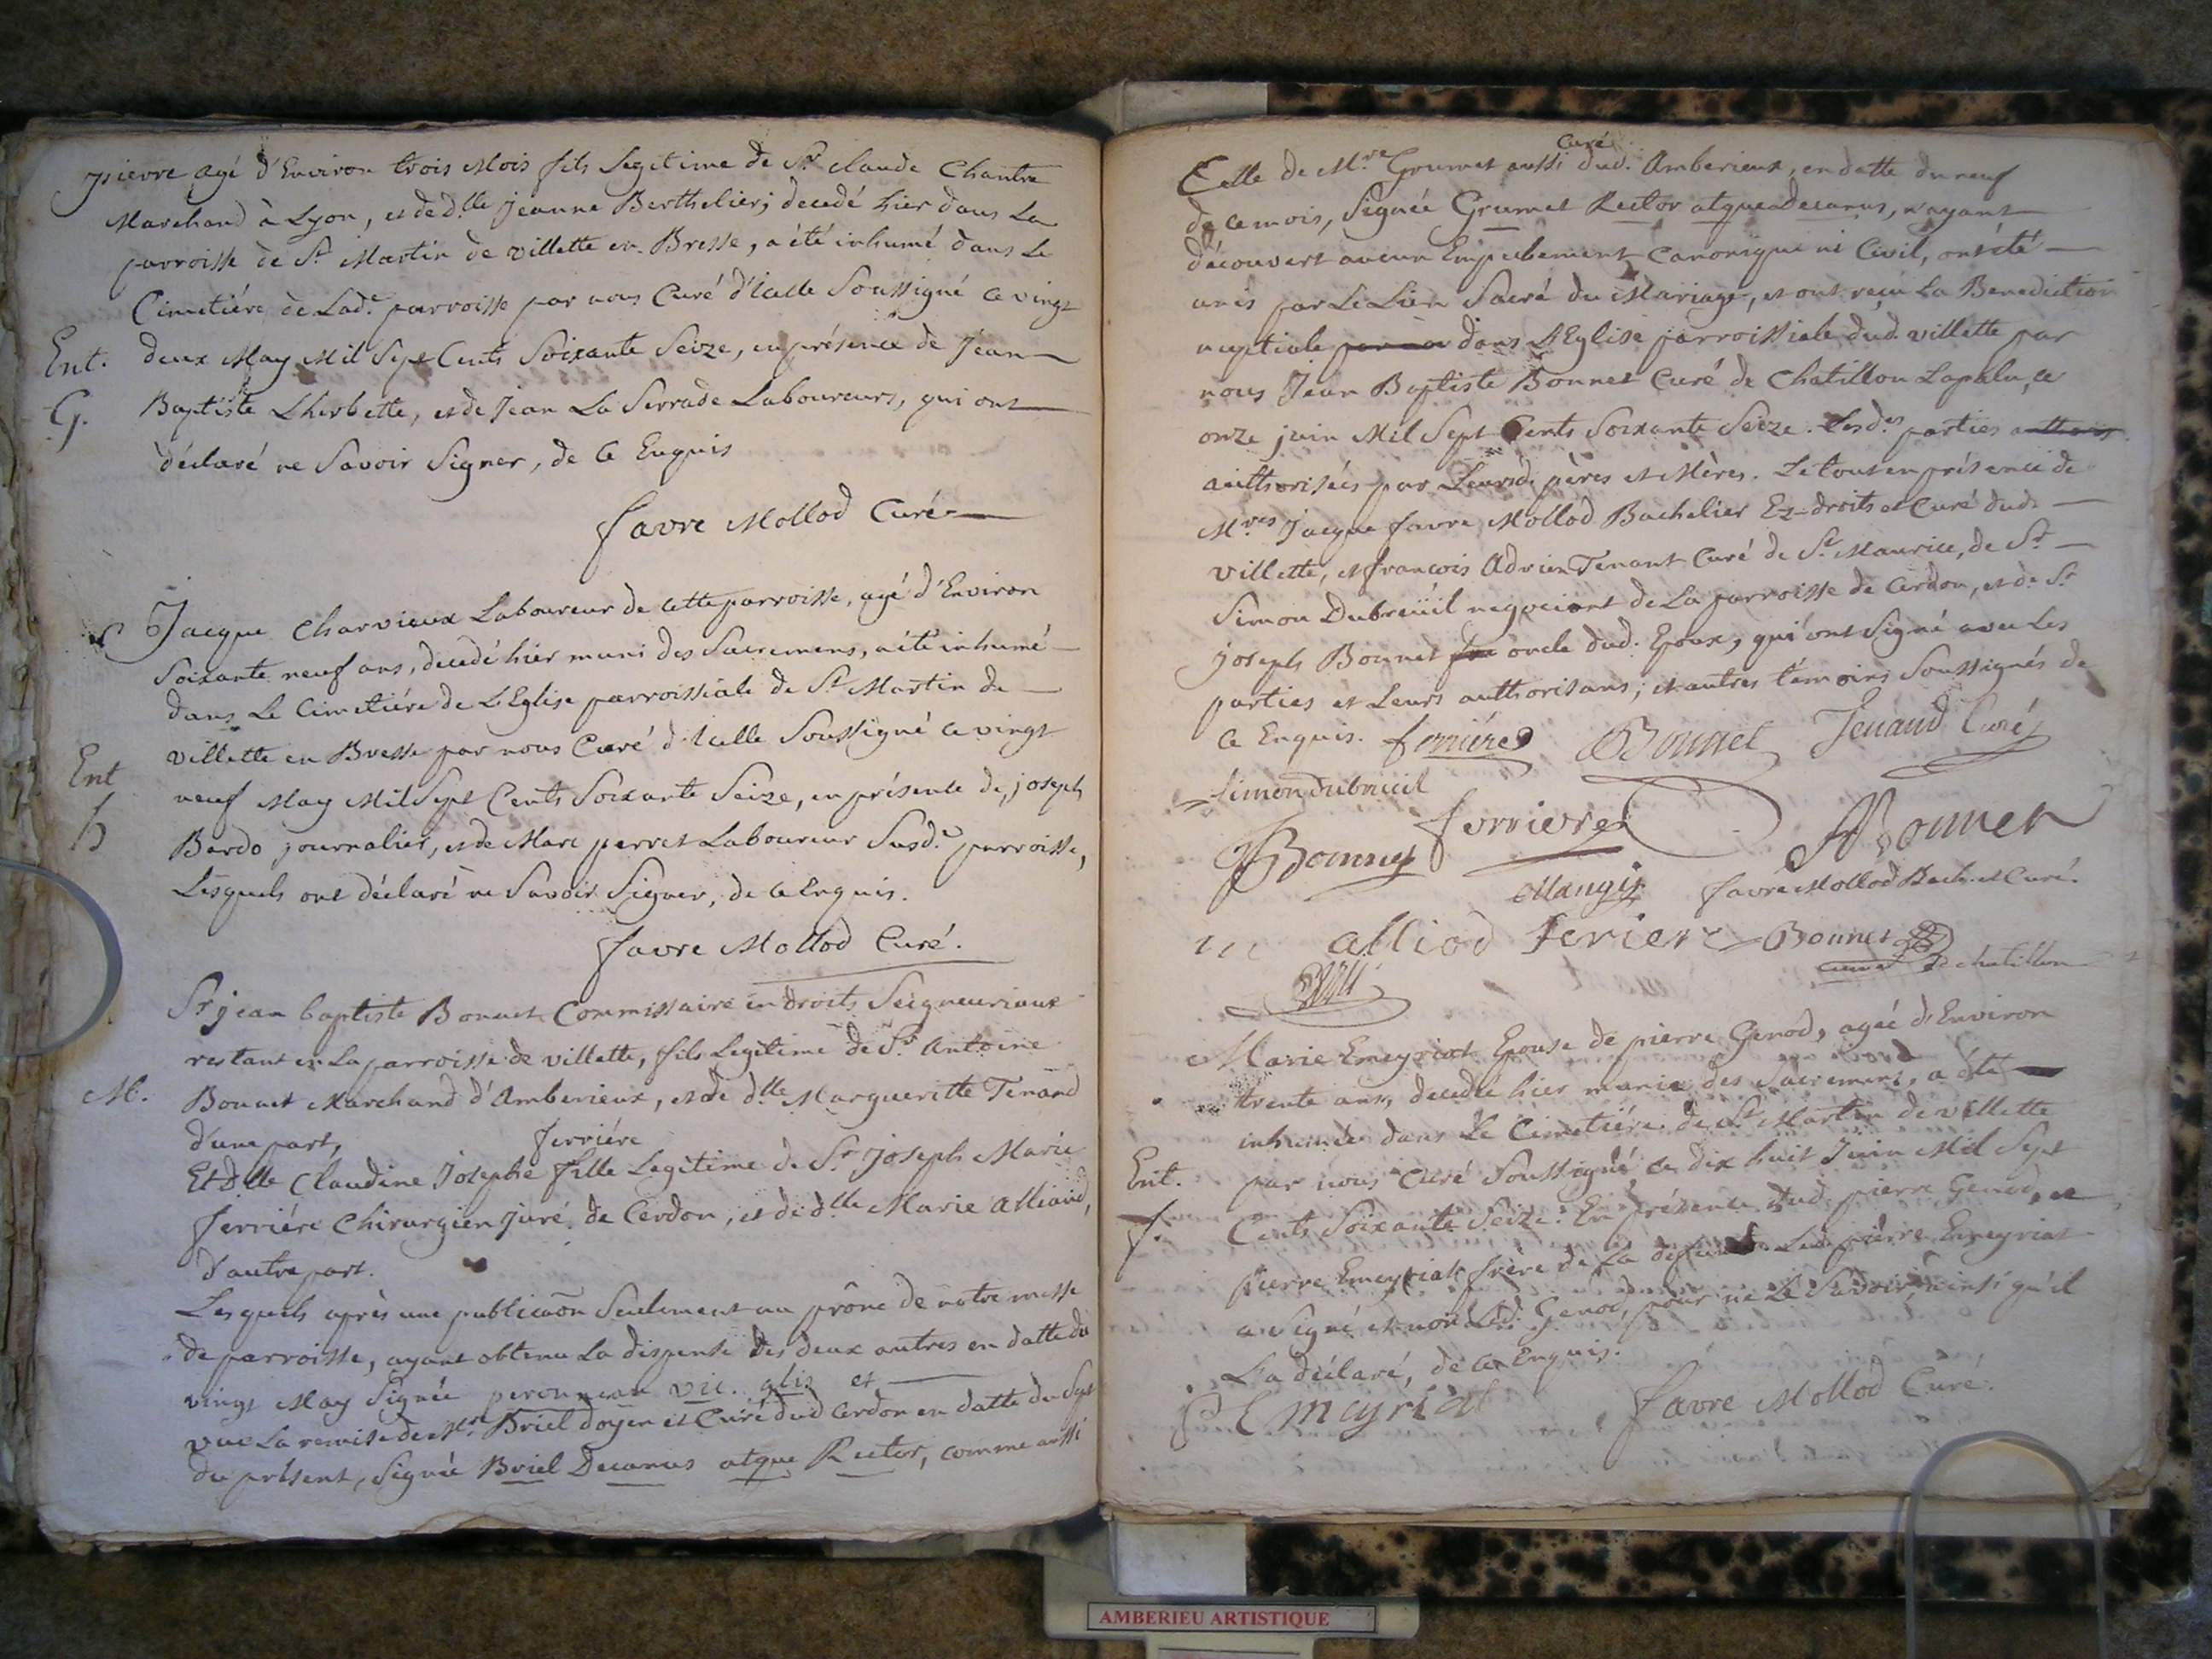 pierre agé d'Environ trois Mois fils Legitime de Sr. claude Chantre
Marchand à Lyon, et de dlle jeanne Berthelier; decedé hier dans La
parroisse de St. Martin de villette en Bresse, a été inhumé dans Le
Cimetiére de Lade. parroisse par nous Curé d'Icelle Soussigné ce vingt
Ent. deux May Mil Sept Cents Soixante Seize, en présence de Jean
G. Baptiste Lherbette, et de Jean La Serrade Laboureurs, qui ont
déclaré ne Savoir Signer, de ce Enquis
favre Mollod Curé
Jacque Charvieux Laboureur de cette parroisse, agé d'Environ
Soixante neuf ans, decedé hier muni des Sacremens, a été inhumé
dans Le Cimetiére de L'Eglise parroissiale de St Martin de
villette en Bresse par nous Curé d'Icelle Soussigné ce vingt
Ent neuf May Mil Sept Cents Soixante Seize, en présence de joseph
h Bardo journalier, et de Marc perret Laboureur Susde. parroisse,
Lesquels ont déclaré ne Savoir Signer, de ce Enquis.
favre Mollod Curé.
Sr jean baptiste Bonnet Commissaire en droits Seigneuriaux
restant en La parroisse de villette, fils Legitime de Sr. Antoine
M. Bonnet Marchand d'Amberieux, et de dlle Margueritte Tenand
d'une part,
ferriére
Et Dlle Claudine Josephe fille Legitime de Sr joseph Marie
ferriére Chirurgien Juré de Cerdon, et de dlle Marie Alliaud,
d'autre part.
Lesquels après une publicaõn Seulement au prône de notre messe
de parroisse, ayant obtenu La dispense des deux autres en datte du
vingt May Signée vic. glis et
vue La remise de Mre Briel doyen et Curé dud Cerdon en datte du Sept
du présent, Signée Briel Decanus atque Rector, comme aussi
Curé
Celle de Mre Goumet aussi dud. Amberieux, en datte du neuf
de ce mois, Signée Grumet Rector atque Decanus, n'ayant
découvert aucun Empechement Canonique ni Civil, ont été
unis par Le Lien Sacré du Mariage, et ont reçu La Benediction
nuptiale dans L'Eglise parroissiale dud. villette par
nous Jean Baptiste Bonnet Curé de Chatillon Lapalu, ce
onze juin Mil Sept Cents Soixante Seize. Lesdes parties
authorisées par Leursd. pères et Mères. Le tout en présence de
Mres Jacque favre Mollod Bachelier Ez-droits et Curé dud.
Villette, et francois Adrien Tenant Curé de St. Maurice, de Sr
Simon Dubreüil negociant de La parroisse de Cerdon, et de Sr
joseph Bonnet oncle dud. Epoux, qui ont Signé avec Les
parties et Leurs authorisans; et autres témoins Soussignés de
ce Enquis. ferriére Bonnet Tenand Curé
Simon dubreuil
JBonnet ferriere Bonnet
Mangis favre Mollod Bach. et Curé.
alliod feriere Bonnet
curé de chatillon
Marie Emeyriat Epouse de pierre Genod, agée d'Environ
trente ans, decedée hier munie des Sacremens, a été
inhumée dans Le Cimetiére de St Martin de villette
Ent. par nous Curé Soussigné, ce dix huit Juin Mil Sept
f. Cents Soixante Seize. En présence dud. pierre Genod, et
pierre Emeyriat frère de La defunte. Led. pierre Emeyriat
a Signé et non Led. Genod, pour ne Le Savoir, ainsi qu'il
L'a déclaré, de ce Enquis.
P Emeyriat favre Mollod Curé.
AMBERIEU ARTISTIQUE